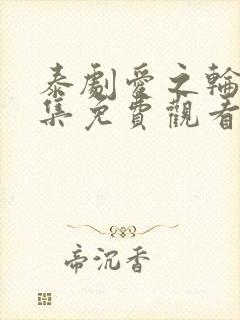 泰劇愛之輪
集免費觀看
帝沉香